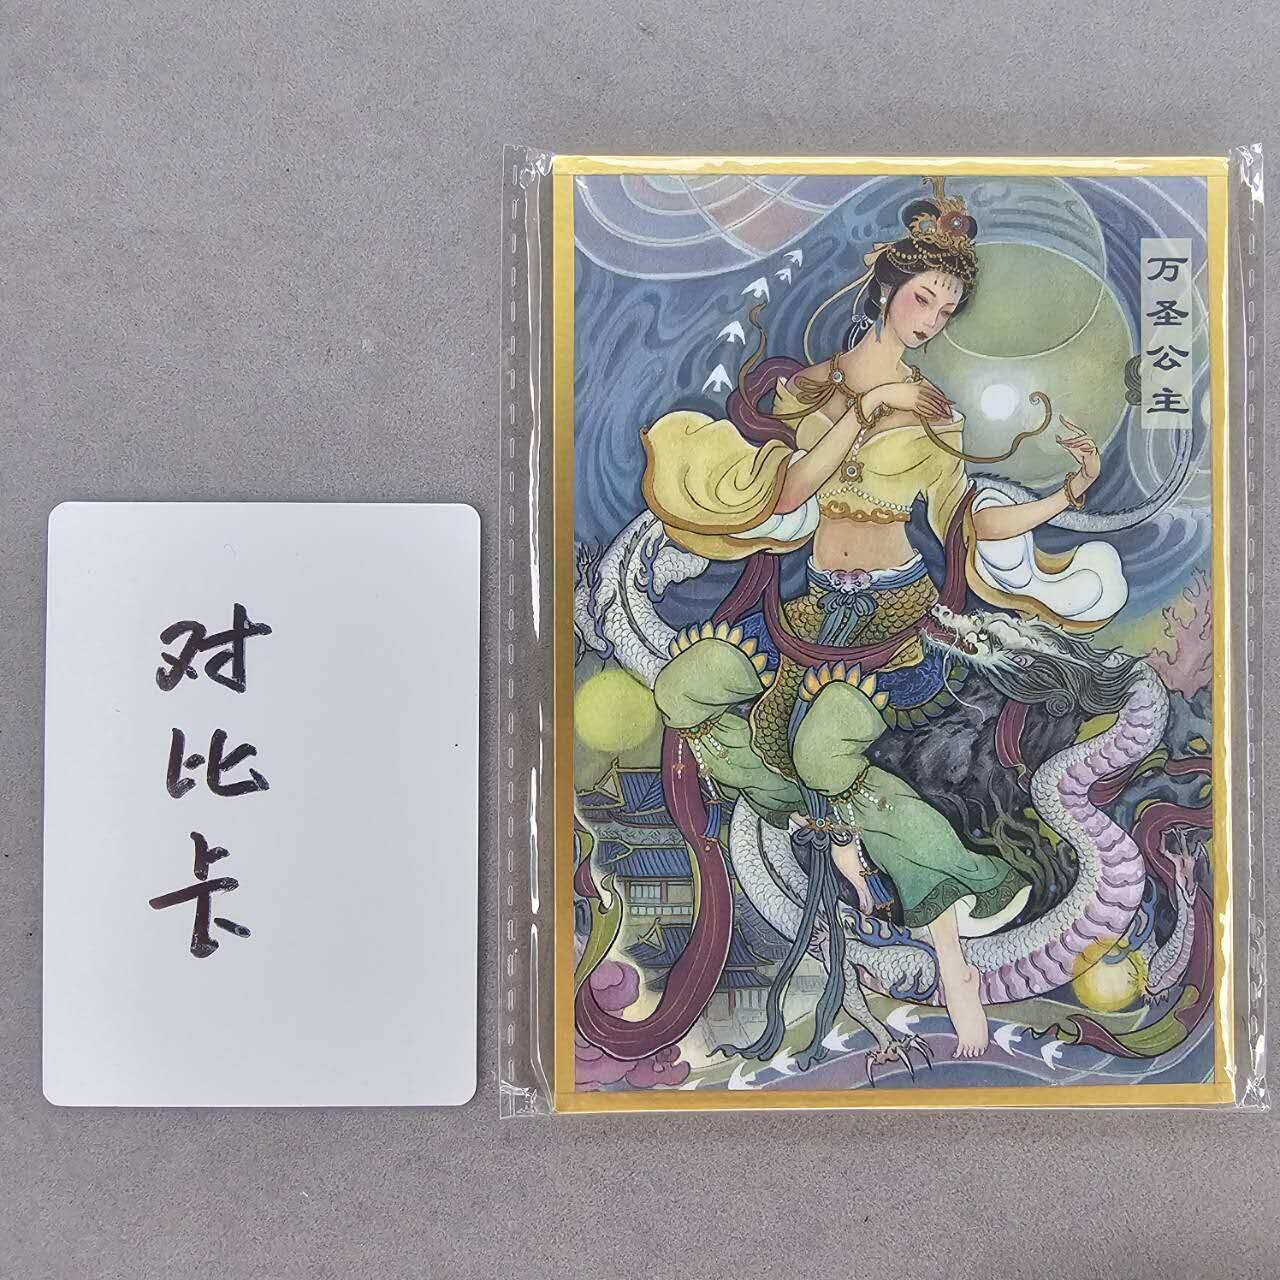 对比卡
万圣公主